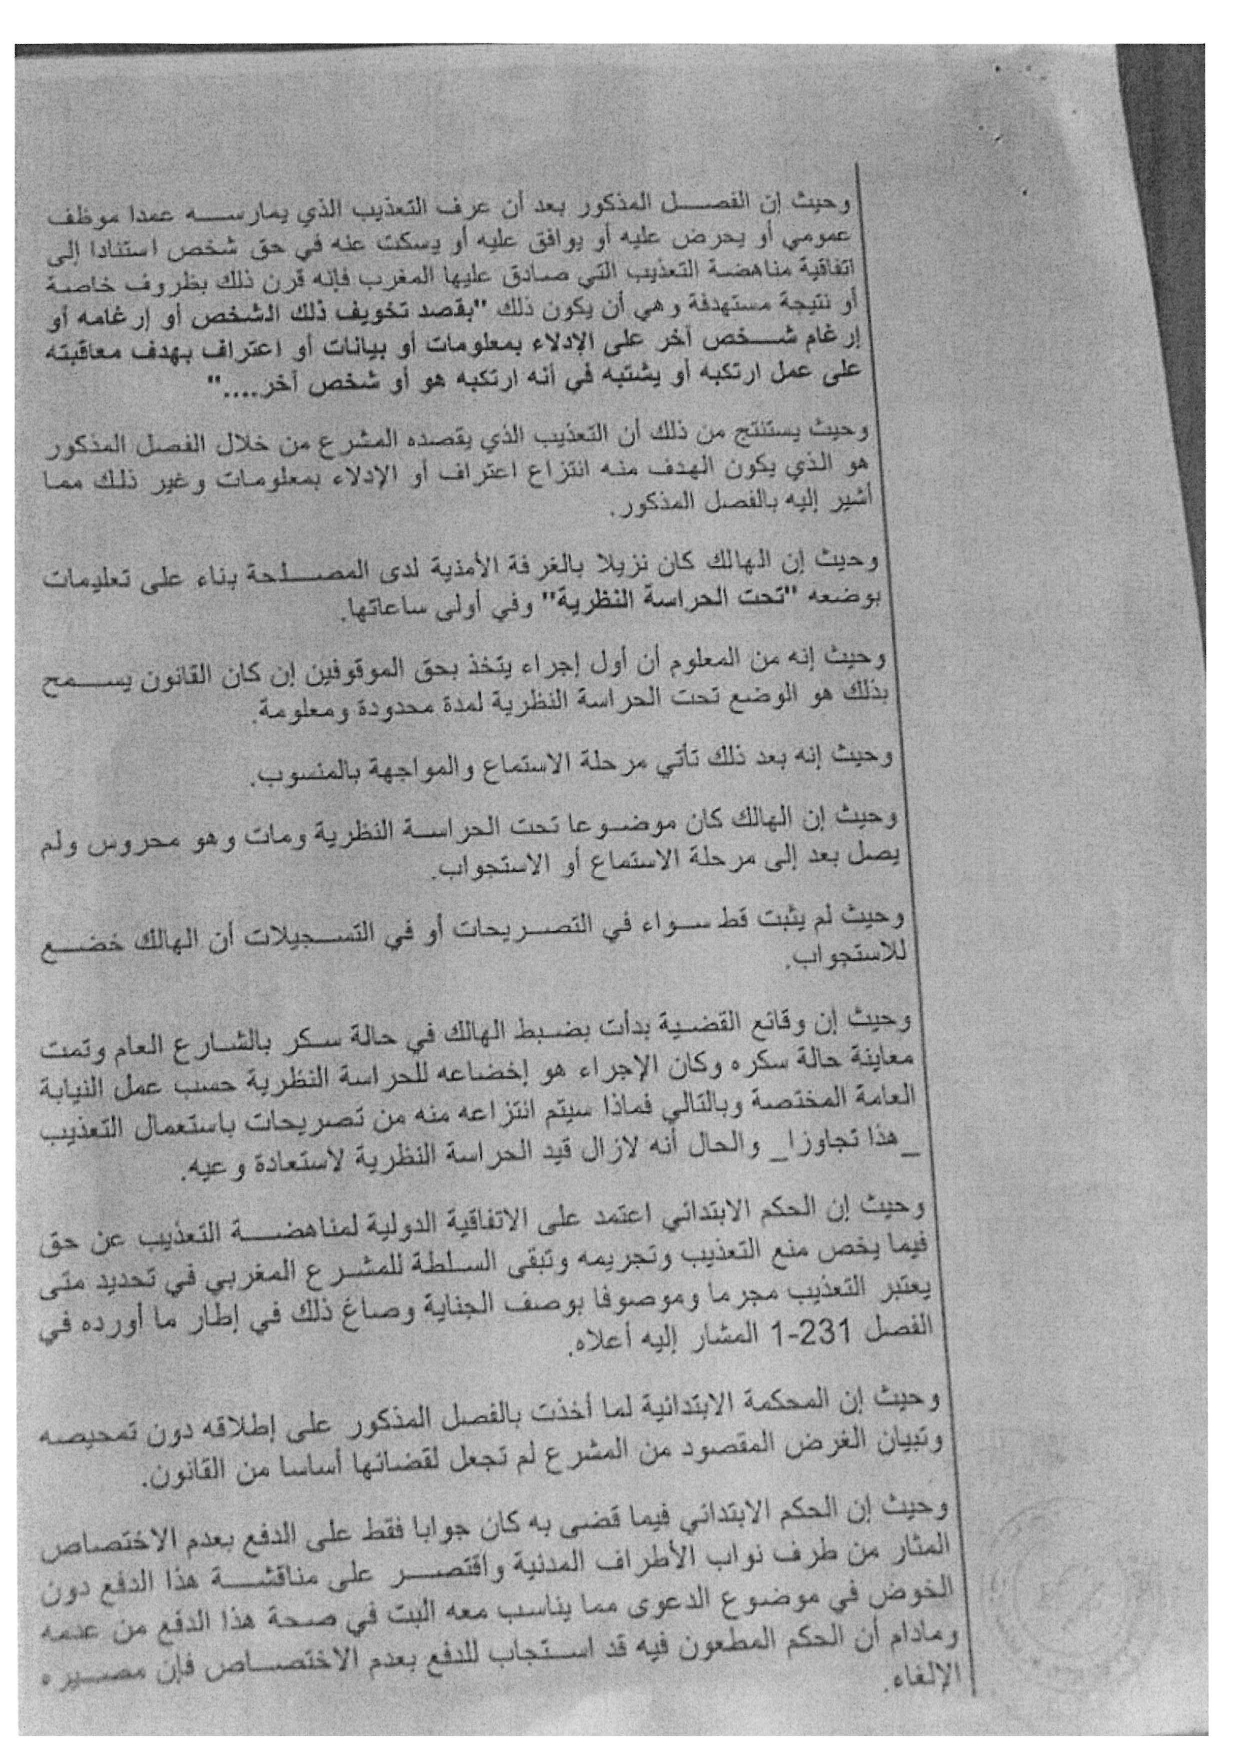 وحيث إن الفصل المذكور بعد أن عرف التعذيب الذي يمارسه عمدا موظف
عمومي أو يحرض عليه أو يوافق عليه أو يسكت عنه في حق شخص استنادا إلى
اتفاقية مناهضة التعذيب التي صادق عليها المغرب فإنه قرن ذلك بظروف خاصة
أو نتيجة مستهدفة وهي أن يكون ذلك "بقصد تخويف ذلك الشخص أو إرغامه أو
إرغام شخص آخر على الإدلاء بمعلومات أو بيانات أو اعتراف بهدف معاقبته
على عمل ارتكبه أو يشتبه في أنه ارتكبه هو أو شخص آخر...."
وحيث يستنتج من ذلك أن التعذيب الذي يقصده المشرع من خلال الفصل المذكور
هو الذي يكون الهدف منه انتزاع اعتراف أو الإدلاء بمعلومات وغير ذلك مما
أشير إليه بالفصل المذكور.
وحيث إن الهالك كان نزيلا بالغرفة الأمنية لدى المصلحة بناء على تعليمات
بوضعه "تحت الحراسة النظرية" وفي أولى ساعاتها.
وحيث إنه من المعلوم أن أول إجراء يتخذ بحق الموقوفين إن كان القانون يسمح
بذلك هو الوضع تحت الحراسة النظرية لمدة محدودة ومعلومة.
وحيث إنه بعد ذلك تأتي مرحلة الاستماع والمواجهة بالمنسوب.
وحيث إن الهالك كان موضوعا تحت الحراسة النظرية ومات وهو محروس ولم
يصل بعد إلى مرحلة الاستماع أو الاستجواب.
وحيث لم يثبت قط سواء في التصريحات أو في التسجيلات أن الهالك خضع
للاستجواب.
وحيث إن وقائع القضية بدأت بضبط الهالك في حالة سكر بالشارع العام وتمت
معاينة حالة سكره وكان الإجراء هو إخضاعه للحراسة النظرية حسب عمل النيابة
العامة المختصة وبالتالي فماذا سيتم انتزاعه منه من تصريحات باستعمال التعذيب
_هذا تجاوزا_ والحال أنه لازال قيد الحراسة النظرية لاستعادة وعيه.
وحيث إن الحكم الابتدائي اعتمد على الاتفاقية الدولية لمناهضة التعذيب عن حق
فيما يخص منع التعذيب وتجريمه وتبقى السلطة للمشرع المغربي في تحديد متى
يعتبر التعذيب مجرما وموصوفا بوصف الجناية وصاغ ذلك في إطار ما أورده في
الفصل 231-1 المشار إليه أعلاه.
وحيث إن المحكمة الابتدائية لما أخذت بالفصل المذكور على إطلاقه دون تمحيصه
وتبيان الغرض المقصود من المشرع لم تجعل لقضائها أساسا من القانون.
وحيث إن الحكم الابتدائي فيما قضى به كان جوابا فقط على الدفع بعدم الاختصاص
المثار من طرف نواب الأطراف المدنية واقتصر على مناقشة هذا الدفع دون
الخوض في موضوع الدعوى مما يناسب معه البت في صحة هذا الدفع من عدمه
ومادام أن الحكم المطعون فيه قد استجاب للدفع بعدم الاختصاص فإن مصيره
الإلغاء.